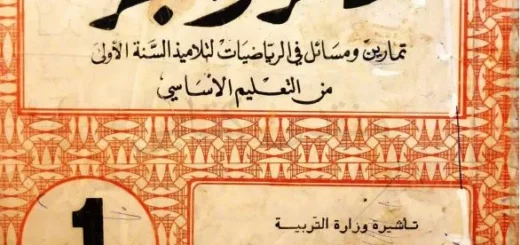 تمارين ومسائل في الرياضيات لتلاميذ السنة الأولى
من التعليم الأساسي
1
تأشيرة وزارة التربية